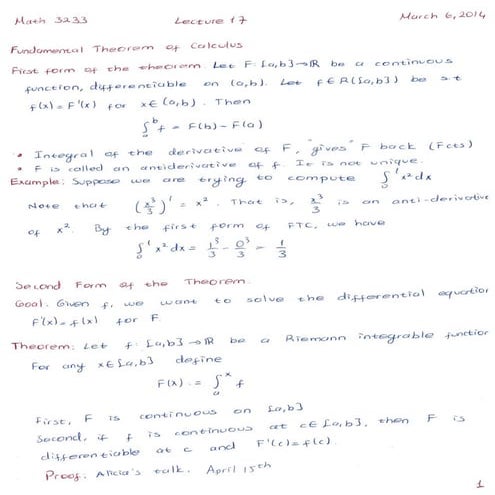 Math 3233 Lecture 17 March 6, 2014
Fundamental Theorem of Calculus
First form of the theorem. Let F: [a,b] → ℝ be a continuous
function, differentiable on (a,b). Let f ∈ R([a,b]) be s.t
f(x) = F'(x) for x ∈ (a,b). Then
∫_a^b f = F(b) - F(a)
• Integral of the derivative of F, "gives" F back (Fcts)
• F is called an antiderivative of f. It is not unique.
Example: Suppose we are trying to compute ∫_0^1 x² dx
Note that (x³/3)' = x². That is, x³/3 is an anti-derivative
of x². By the first form of FTC, we have
∫_0^1 x² dx = 1³/3 - 0³/3 = 1/3
Second Form of the Theorem.
Goal: Given f, we want to solve the differential equation
F'(x) = f(x) for F.
Theorem: Let f: [a,b] → ℝ be a Riemann integrable function
For any x ∈ [a,b] define
F(x) := ∫_a^x f
First, F is continuous on [a,b]
Second, if f is continuous at c ∈ [a,b], then F is
differentiable at c and F'(c) = f(c).
Proof: Alicia's talk. April 15th
1